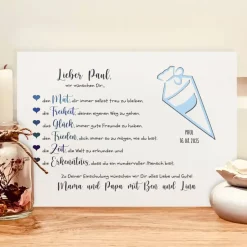 Lieber Paul,
wir wünschen Dir...
den Mut, dir immer selbst treu zu bleiben.
die Freiheit, deinen eigenen Weg zu gehen.
das Glück, immer gute Freunde zu haben.
den Frieden, dich immer so zu mögen, wie du bist.
die Zeit, die Welt zu erkunden und
die Erkenntnis, dass du ein wundervoller Mensch bist.
Zu Deiner Einschulung wünschen wir Dir alles Liebe und Gute!
Mama und Papa mit Ben und Lina
PAUL
16.08.2025